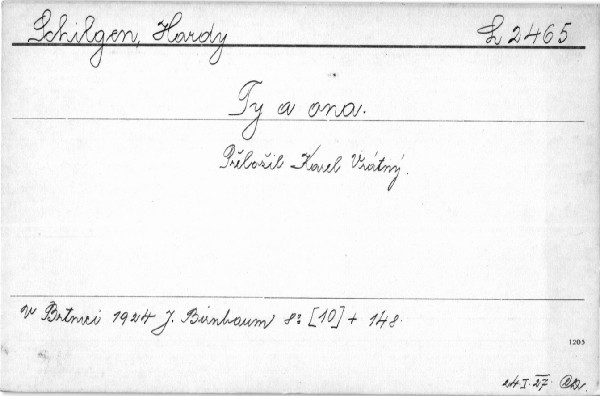 Schilgen, Hardy L 2465
Ty a ona.
Přeložil Karel Vrátný.
V Brtnici 1924 J. Birnbaum 8: [10] + 148.
1205
24 I. 27.